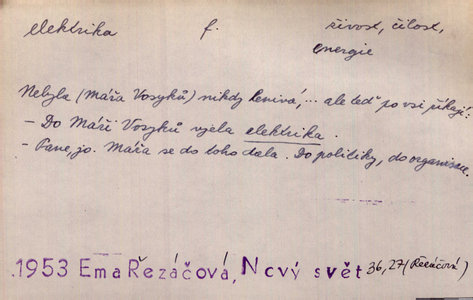 elektrika f. živost, čilost,
energie
Nebyla (Máňa Vosyků) nikdy lenivá,... ale teď po vsi říkají:
- Do Máni Vosyků vjela elektrika.
- Pane, jo. Máňa se do toho dala. Do politiky, do organisace.
.1953 Ema Řezáčová, Nový svět 36,27 (Řezáčová)